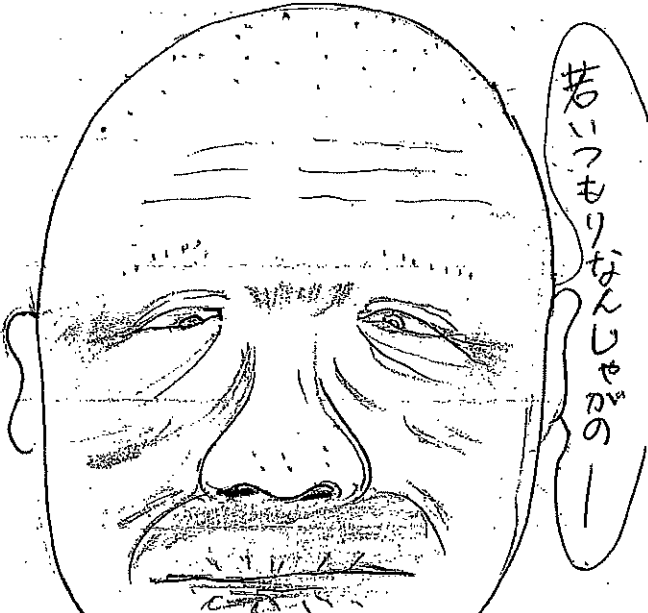 若いつもりなんじゃがのー